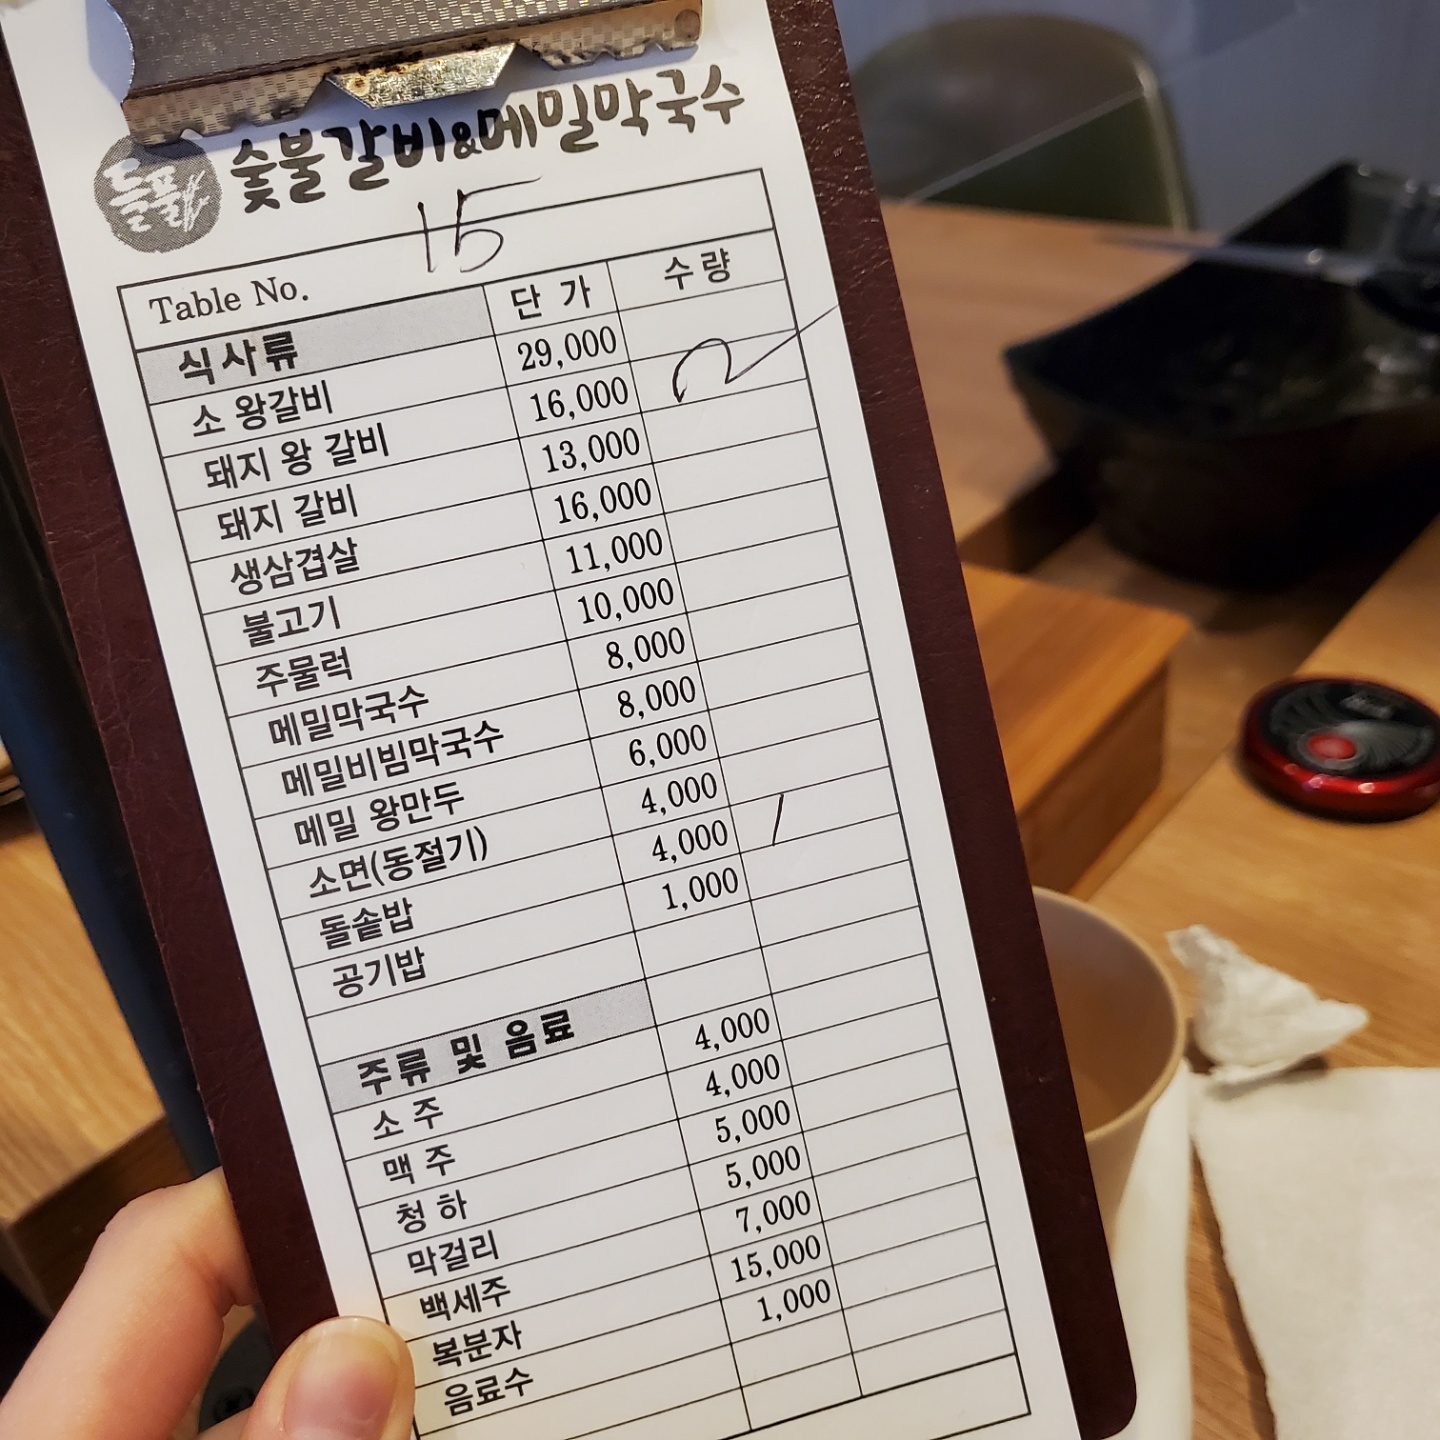 들풀 숯불갈비&메밀막국수
Table No. 15
식사류 단 가 수 량
소 왕갈비 29,000
돼지 왕 갈비 16,000 2
돼지 갈비 13,000
생삼겹살 16,000
불고기 11,000
주물럭 10,000
메밀막국수 8,000
메밀비빔막국수 8,000
메밀 왕만두 6,000
소면(동절기) 4,000
돌솥밥 4,000 1
공기밥 1,000
주류 및 음료
소 주 4,000
맥 주 4,000
청 하 5,000
막걸리 5,000
백세주 7,000
복분자 15,000
음료수 1,000